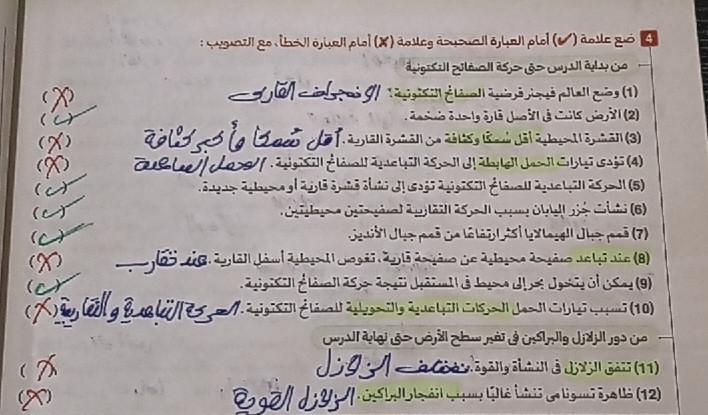 4 ضع علامة (✓) أمام العبارة الصحيحة وعلامة (✗) أمام العبارة الخطأ، مع التصويب :
من بداية الدرس حتى حركة الصفائح التكتونية
(1) وضع العالم فيجنر فرضية الصفائح التكتونية. الانجراف القارى (✗)
(2) الأرض كانت فى الأصل قارة واحدة ضخمة. (✓)
(3) القشرة المحيطية أقل سُمكًا وكثافة من القشرة القارية. أقل سُمكًا وأكبر كثافة (✗)
(4) تؤدى تيارات الحمل الهابطة إلى الحركة التباعدية للصفائح التكتونية. الحمل الصاعدة (✗)
(5) الحركة التباعدية للصفائح التكتونية تؤدى إلى نشأة قشرة قارية أو محيطية جديدة. (✓)
(6) نشأت جُزر اليابان بسبب الحركة التقاربية لصفيحتين محيطيتين. (✓)
(7) قمم جبال الهيمالايا أكثر ارتفاعًا من قمم جبال الأنديز. (✓)
(8) عند تباعد صفيحة محيطية عن صفيحة قارية، تغوص المحيطية أسفل القارية. عند تقارب (✗)
(9) يمكن أن يتحول بحر إلى محيط فى المستقبل نتيجة حركة الصفائح التكتونية. (✓)
(10) تسبب تيارات الحمل الحركات التباعدية والتحويلية للصفائح التكتونية. الحركة التباعدية والتقاربية (✗)
من دور الزلازل والبراكين فى تغير سطح الأرض حتى نهاية الدرس
(11) تتفق الزلازل فى النشأة والقوة. تختلف الزلازل (✗)
(12) ظاهرة تسونامى تنشأ غالبًا بسبب انفجار البراكين. الزلازل القوية (✗)